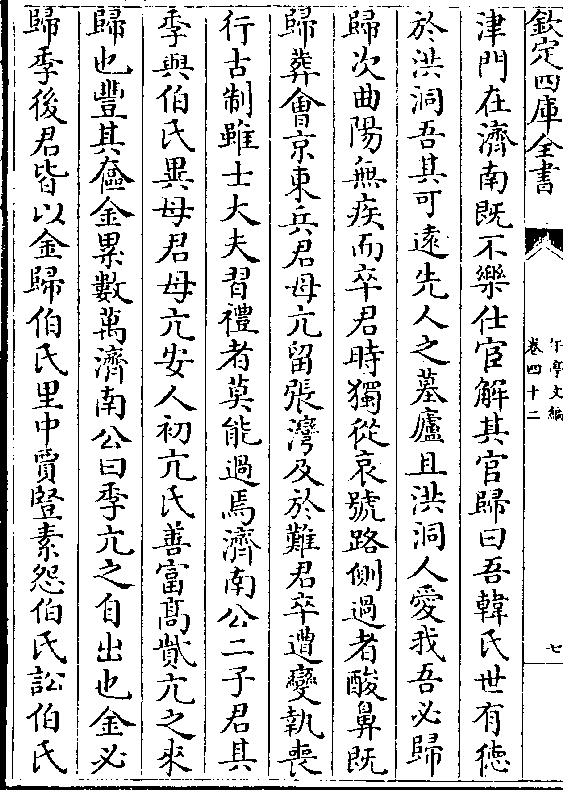 欽定四庫全書
午亭文編
卷四十二
七
津門在濟南既不樂仕宦解其官歸曰吾韓氏世有德
於洪洞吾其可遠先人之墓廬且洪洞人愛我吾必歸
歸次曲陽無疾而卒君時獨從哀號路側過者酸鼻既
歸葬會京東兵君母亢留張灣及於難君卒遭變執喪
行古制雖士大夫習禮者莫能過焉濟南公二子君其
季與伯氏異母君母亢安人初亢氏善富高貲亢之來
歸也豐其奩金累數萬濟南公曰季亢之自出也金必
歸季後君皆以金歸伯氏里中賈豎素怨伯氏訟伯氏